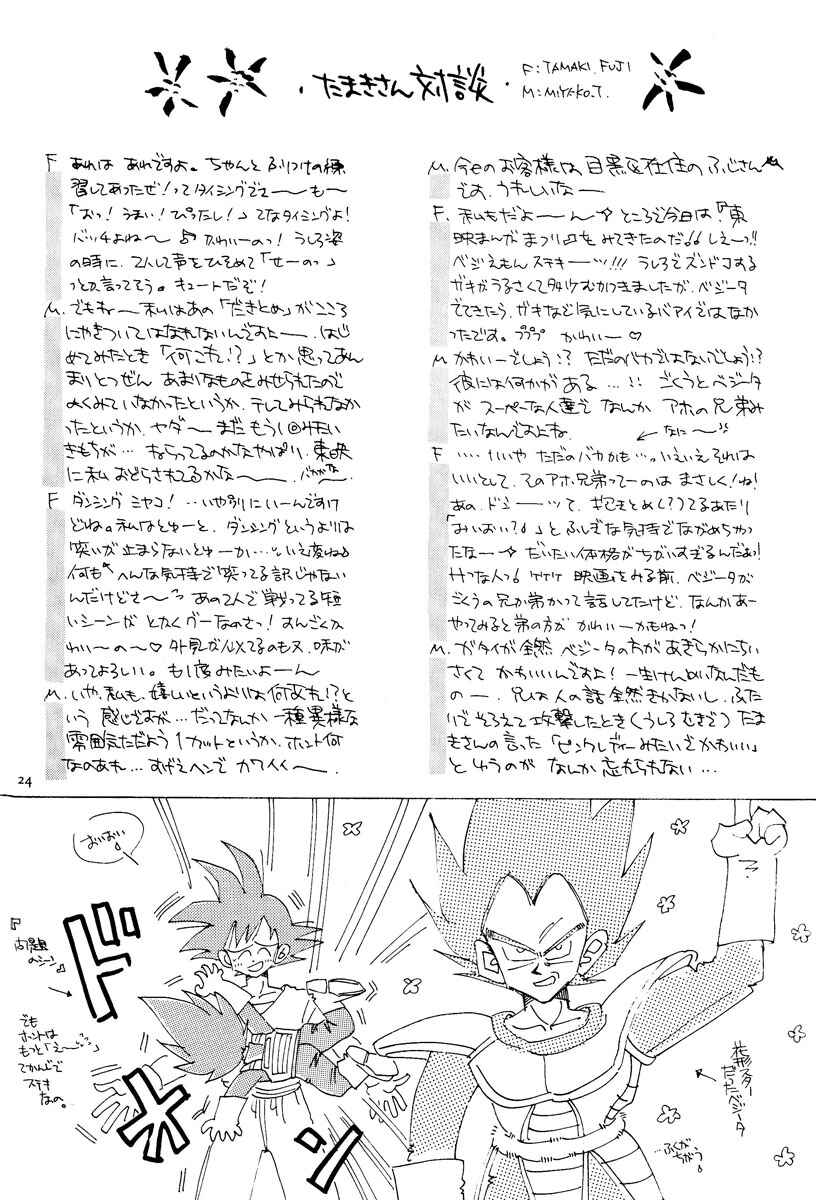 ・たまきさん対談・
F:TAMAKI.FUJI
M:MIYAKO.T.
M.今日のお客様は目黒区在住のふじさん
です。うれしいなー
F.私もだよーーん☆ところで今日は『東
映まんがまつり』をみてきたのだ!!しえーっ!!
ベジえもんステキーッ!!! うしろでズンドコする
ガキがうるさくて むかつきましたが、ベジータ
でてきたら、ガキなど気にしているバアイではなか
ったです。ププププ かわいー♡
M.かわいーでしょう!? ただのバカではないでしょう!?
彼には何かがある...!! ごくうとベジータ
が スーパーな人達で なんか アホの兄弟み
たいなんですよね。 ←なにー!!
F.・・・・いや ただのバカかも・・・いえいえそれは
いいとして、そのアホ兄弟ってーのは まさしく!ね!
あの、ドンーーって、抱きとめ(?)てるあたり
「おいおい?!」とふしぎな気持でながめちゃっ
たなー☆ だいたい体格がちがいすぎるんだよ!
ケケケ 映画をみる前、ベジータが
ごくうの兄か弟かって話してたけど、なんかあー
やってみると弟の方が かわいーかもね!
M.ガタイが全然 ベジータの方があきらかにちい
さくて かわいいんですよ! 一生けんめいなんだも
のー、兄は人の話全然きかないし、ふた
りでそろえて攻撃したとき(うしろむきで)たま
きさんの言った「ピンクレディーみたいでかわいい」
とゆうのが なんか忘れられない...
F あれは あれですよ。ちゃんとふりつけの練
習してあったぜ!ってタイミングでさ〜〜も〜
「おっ!うまい!ぴったし!」てなタイミングよ!
バッチよね〜♪ かわいーのっ!うしろ姿
の時に、2人して声をひそめて「せーのっ」
っとか言っててそう。キュートだぞ!
M.でもねー私はあの「だきとめ」がこころ
にやきついてはなれないんですよーー、はじ
めてみたとき「何これ!?」とか思ってあん
まりとつぜん あまいなものをみせられたので
よくみていなかったというか、テレてみられなか
ったというか、ヤダ〜 まだ もう1回みたい
きもちが... ねらってるのかなやっぱり、東映
に私 おどらされてるかな〜〜。バカかな
F ダンシング ミヤコ!・・いや別にいーんですけ
どね。私はとゅーと、ダンシングというよりは
笑いが止まらないとゅーか・・・いえ変ね
何も へんな気持で笑ってる訳じゃない
んだけどさ〜 あの2人で戦ってる短
いシーンが とかくグーなのさっ!すんごくか
わいーの〜♡ 外見がNXてるのも又、味が
あってよろしい。も1度みたいよーーん
M.いや、私も、嬉しいというよりは何あれ!?と
いう 感じですが...だってなんか 一種異様な
雰囲気ただよう1カットというか、ホント何
なのあれ... すげえヘンで カワイイ〜〜.
24
おいおい
ドキン
『問題
のシーン』
でも
ホントは
もっと「え〜」
てかんじで
ステキ
なの。
花形スター
だったベジータ
...ふくが
ちがう